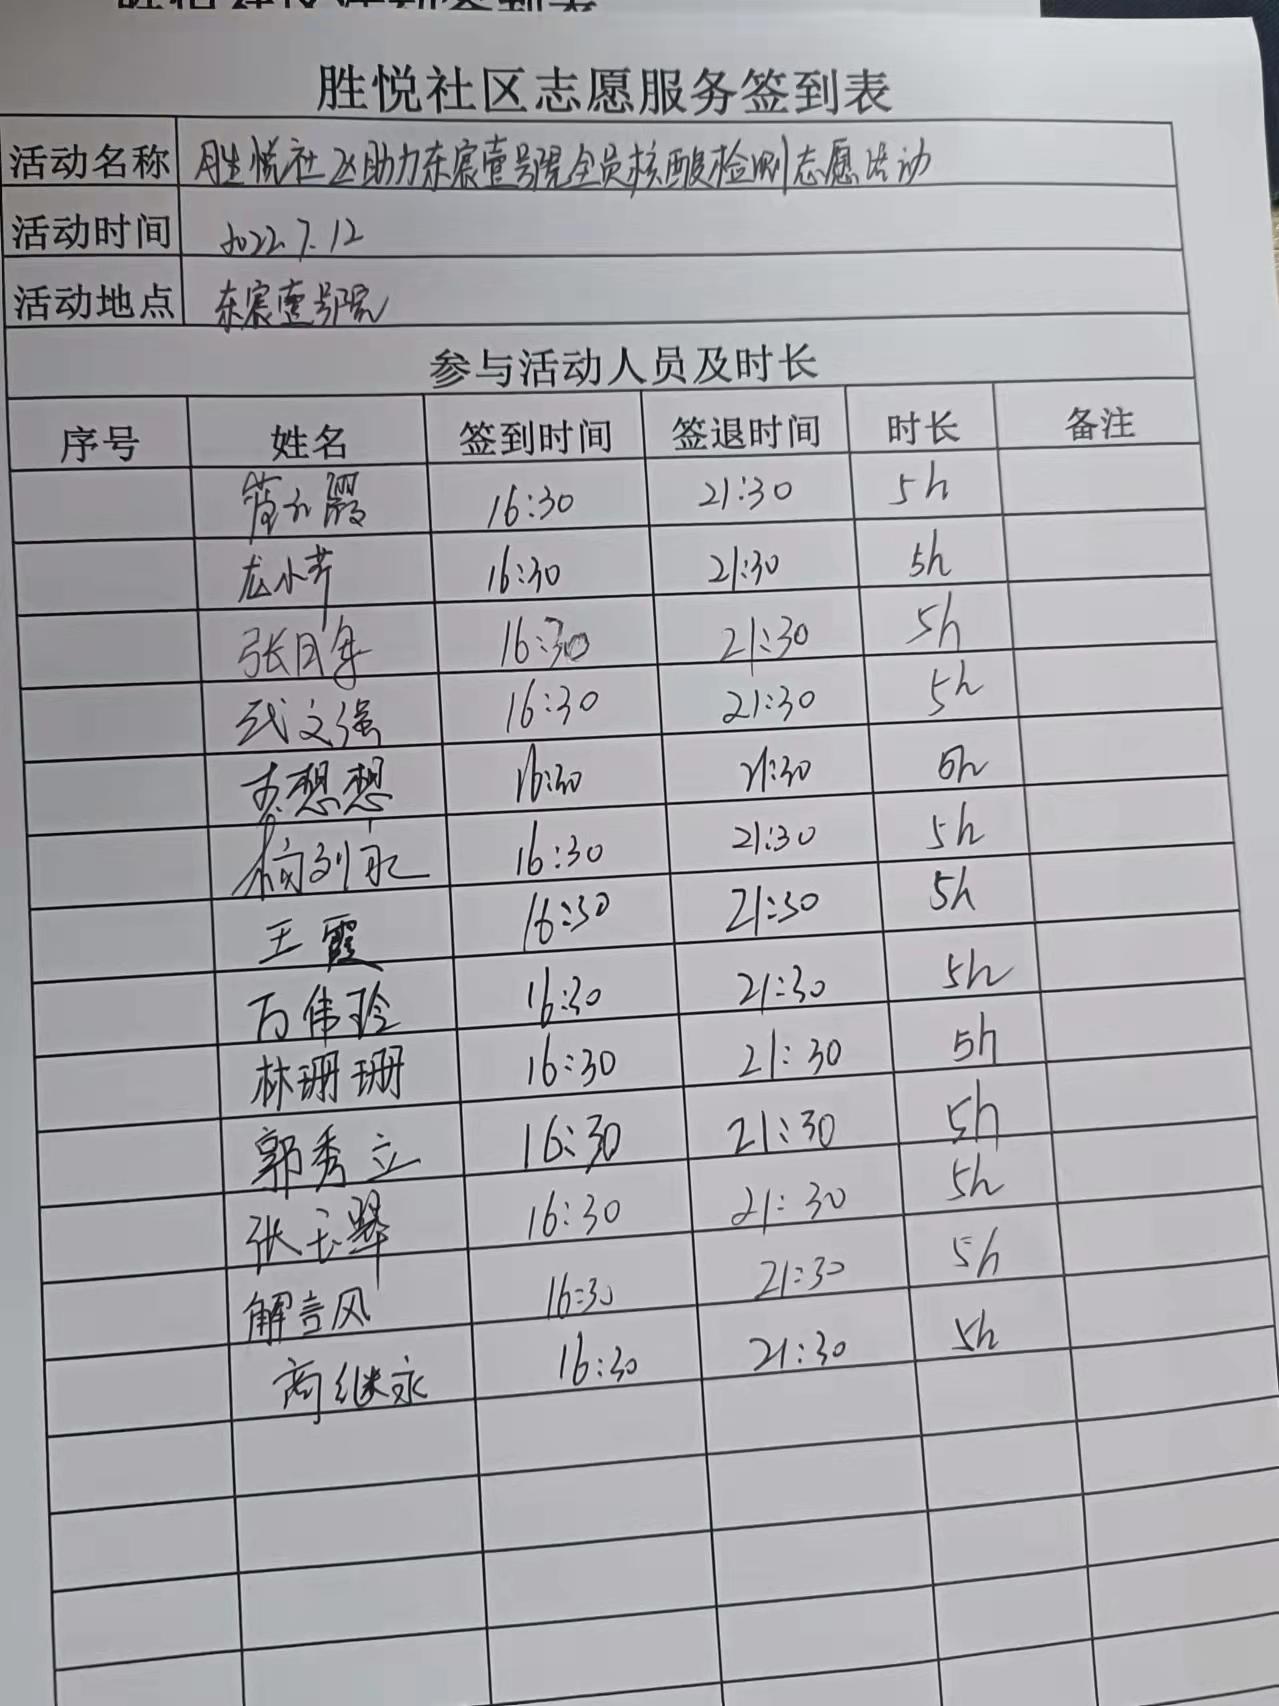 胜悦社区志愿服务签到表
活动名称 胜悦社区助力东宸壹号院全员核酸检测志愿活动
活动时间 2022.7.12
活动地点 东宸壹号院
参与活动人员及时长
序号 姓名 签到时间 签退时间 时长 备注
16:30 21:30 5h
龙小芹 16:30 21:30 5h
张月年 16:30 21:30 5h
武文强 16:30 21:30 5h
想想 16:30 21:30 5h
16:30 21:30 5h
王霞 16:30 21:30 5h
万伟玲 16:30 21:30 5h
林珊珊 16:30 21:30 5h
郭秀立 16:30 21:30 5h
张玉翠 16:30 21:30 5h
解言风 16:30 21:30 5h
商继永 16:30 21:30 5h